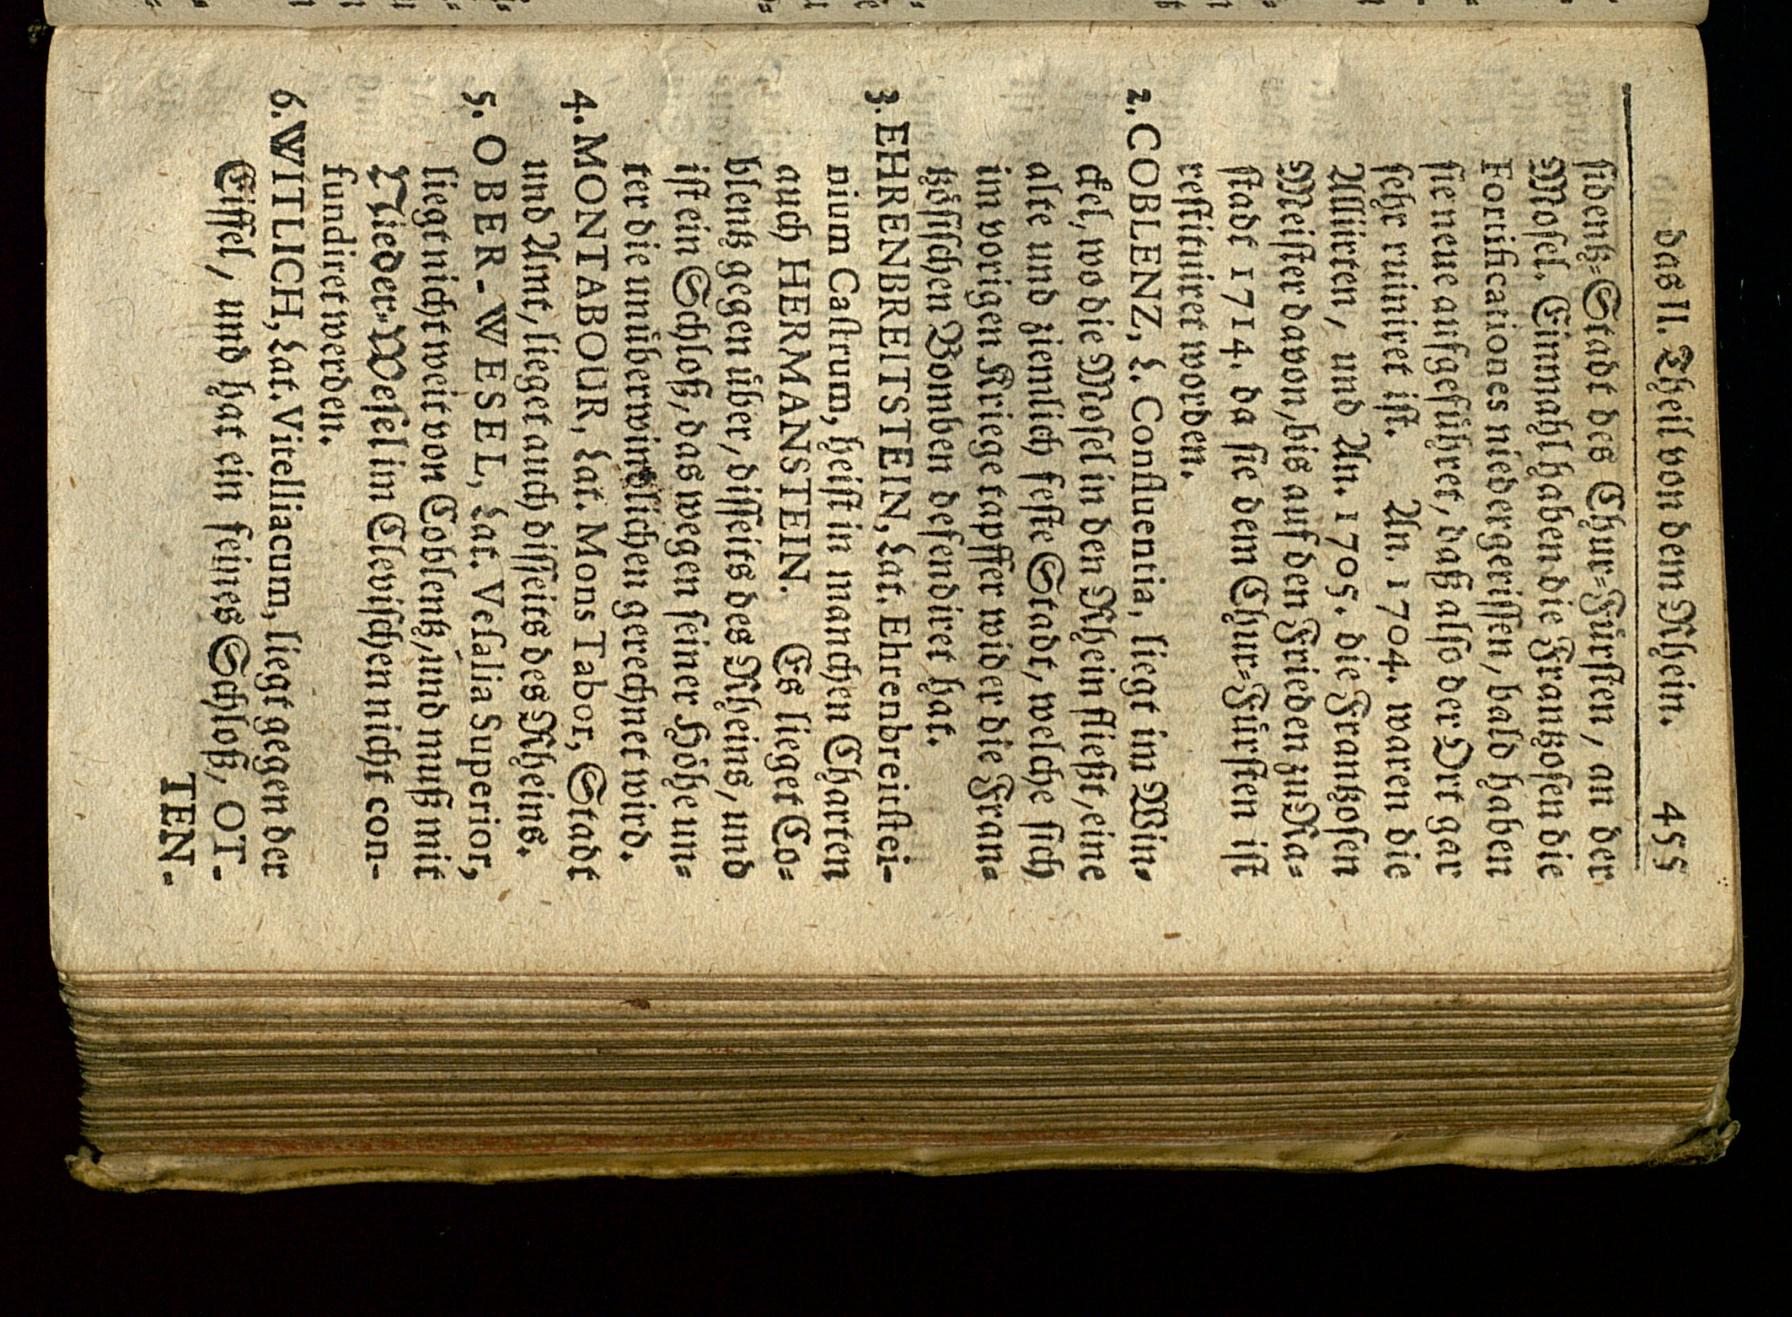 das II. Theil von dem Rhein. 455
ſidentz⸗Stadt des Chur⸗Fuͤrſten / an der
Moſel. Einmahl haben die Frantzoſen die
Fortificationes niedergeriſſen, bald haben
ſie neue aufgefuͤhret, daß alſo der Ort gar
ſehr ruiniret iſt. An. 1704. waren die
Alliirten, und An. 1705. die Frantzoſen
Meiſter davon, bis auf den Frieden zu Ra⸗
ſtadt 1714. da ſie dem Chur⸗Fuͤrſten iſt
reſtituiret worden.
2. COBLENZ, L. Confluentia, liegt im Win⸗
ckel, wo die Moſel in den Rhein fließt, eine
alte und ziemlich feſte Stadt, welche ſich
im vorigen Kriege tapffer wider die Fran⸗
tzoͤſiſchen Bomben defendiret hat.
3. EHRENBREITSTEIN, Lat. Ehrenbreitſtei-
nium Caſtrum, heiſt in manchen Charten
auch HERMANSTEIN. Es lieget Co⸗
blentz gegen uͤber, diſſeits des Rheins, und
iſt ein Schloß, das wegen ſeiner Hoͤhe un⸗
ter die unuͤberwindlichen gerechnet wird.
4. MONTABOUR, Lat. Mons Tabor, Stadt
und Amt, lieget auch diſſeits des Rheins.
5. OBER-WESEL, Lat. Veſalia Superior,
liegt nicht weit von Coblentz, und muß mit
Nieder⸗Weſel im Cleviſchen nicht con-
fundiret werden.
6. WITLICH, Lat. Vitelliacum, liegt gegen der
Eiffel, und hat ein feines Schloß, OT-
TEN-